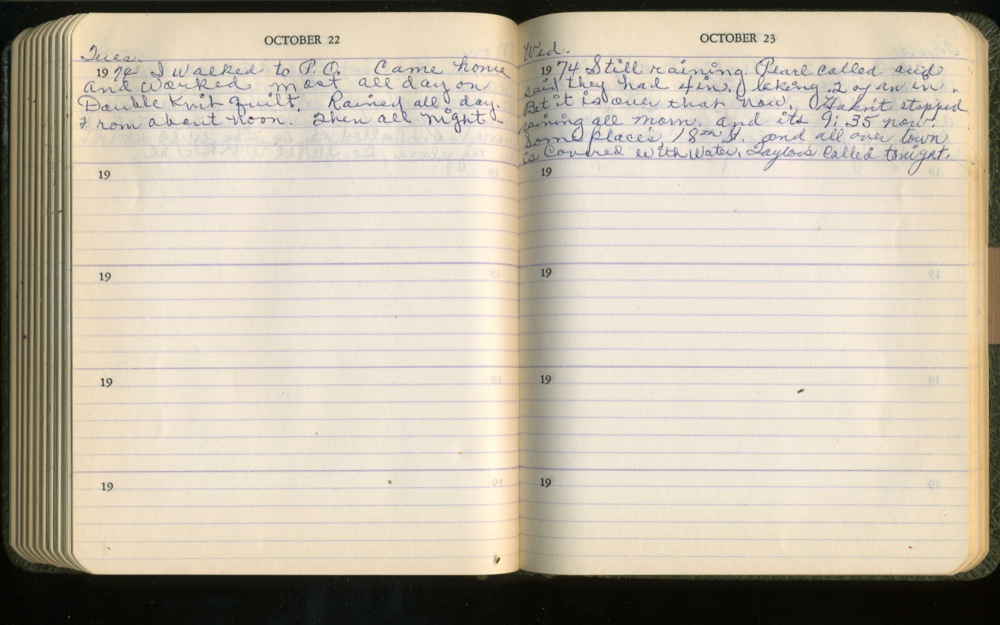 OCTOBER 22
Tues.
1974 I walked to P.O. Came home
and worked most all day on
Double Knit quilt. Rained all day.
From about Noon. Then all night
19
19
19
19
OCTOBER 23
Wed.
1974 Still raining Pearl called and
said they had 4 in. laking .2 of an in.
But it is over that now. Hasn't stopped
raining all morn. and its 9:35 now.
Some places, 18th St. and all over town
is Covered With Water, Taylors Called tonight.
19
19
19
19